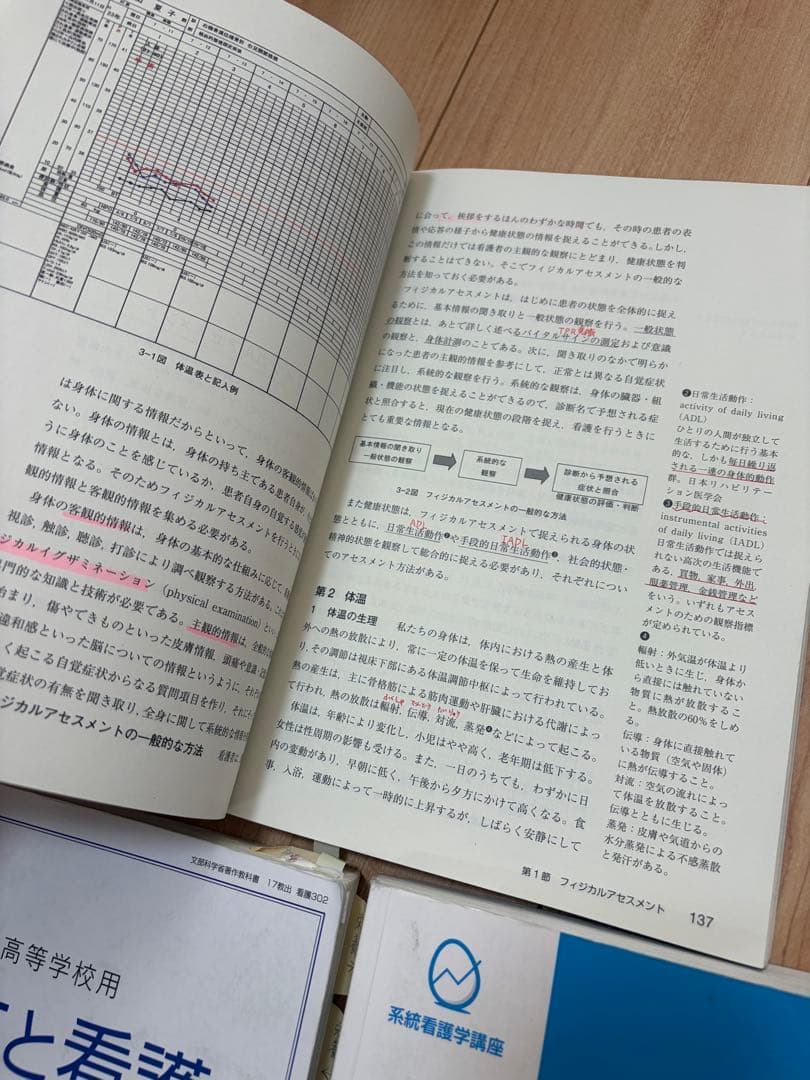 3-1図 体温表と記入例
は身体に関する情報だからといって、身体の客観的情報
ない。身体の情報とは、身体の持ち主である患者自身が、
うに身体のことを感じているか、患者自身の自覚する
情報となる。そのためフィジカルアセスメントを行うときに
観的情報と客観的情報を集める必要がある。
身体の客観的情報は、身体の基本的な仕組みに応じて、
視診、触診、聴診、打診により調べ観察する方法がある。
ジカルイグザミネーション（physical examination）といい
門的な知識と技術が必要である。主観的情報は、
始まり、傷やできものといった皮膚情報、頭痛や意識・
違和感といった脳についての情報というように、
く起こる自覚症状からなる質問項目を作り、
覚症状の有無を聞き取り、全身に関して系統的な情報
ジカルアセスメントの一般的な方法
看護者は
に会って、挨拶をするほんのわずかな時間でも、その時の患者の表
情や応答の様子から健康状態の情報を捉えることができる。しかし、
この情報だけでは看護者の主観的な観察にとどまり、健康状態を判
断することはできない。そこでフィジカルアセスメントの一般的な
方法を知っておく必要がある。
フィジカルアセスメントは、はじめに患者の状態を全体的に捉え
るために、基本情報の聞き取りと一般状態の観察を行う。一般状態
の観察とは、あとで詳しく述べるバイタルサインの測定および意識
の観察と、身体計測のことである。次に、聞き取りのなかで明らか
になった患者の主観的情報を参考にして、正常とは異なる自覚症状
に注目し、系統的な観察を行う。系統的な観察は、身体の臓器・組
織・機能の状態を捉えることができるので、診断名で予想される症
状と照合すると、現在の健康状態の段階を捉え、看護を行うときに
とても重要な情報となる。
基本情報の聞き取り
一般状態の観察
系統的な
観察
診断から予想される
症状と照合
健康状態の評価・判断
3-2図 フィジカルアセスメントの一般的な方法
また健康状態は、フィジカルアセスメントで捉えられる身体の状
ADL
IADL
態とともに、日常生活動作❷や手段的日常生活動作❸、社会的状態・
精神的状態を観察して総合的に捉える必要があり、それぞれについ
てのアセスメント方法がある。
第2 体温
1 体温の生理 私たちの身体は、体内における熱の産生と体
外への熱の放散により、常に一定の体温を保って生命を維持してお
り、その調節は視床下部にある体温調節中枢によって行われている。
熱の産生は、主に骨格筋による筋肉運動や肝臓における代謝によっ
て行われ、熱の放散は輻射、伝導、対流、蒸発❹などによって起こる。
体温は、年齢により変化し、小児はやや高く、老年期は低下する。
女性は性周期の影響も受ける。また、一日のうちでも、わずかに日
内の変動があり、早朝に低く、午後から夕方にかけて高くなる。食
事、入浴、運動によって一時的に上昇するが、しばらく安静にして
❷日常生活動作：
activity of daily living
（ADL）
ひとりの人間が独立して
生活するために行う基本
的な、しかも毎日繰り返
される一連の身体的動作
群。日本リハビリテー
ション医学会
❸手段的日常生活動作：
instrumental activities
of daily living（IADL）
日常生活動作では捉えら
れない高次の生活機能で
ある、買物、家事、外出、
服薬管理、金銭管理など
をいう。いずれもアセス
メントのための観察指標
が定められている。
❹
輻射：外気温が体温より
低いときに生じ、身体か
ら直接には触れていない
物質に熱が放散するこ
と。熱放散の60％をしめ
る。
伝導：身体に直接触れて
いる物質（空気や固体）
に熱が伝導すること。
対流：空気の流れによっ
て体温を放散すること。
伝導とともに生じる。
蒸発：皮膚や気道からの
水分蒸発による不感蒸散
と発汗がある。
第1節 フィジカルアセスメント 137
文部科学省著作教科書 17教出 看護302
高等学校用
と看護
系統看護学講座